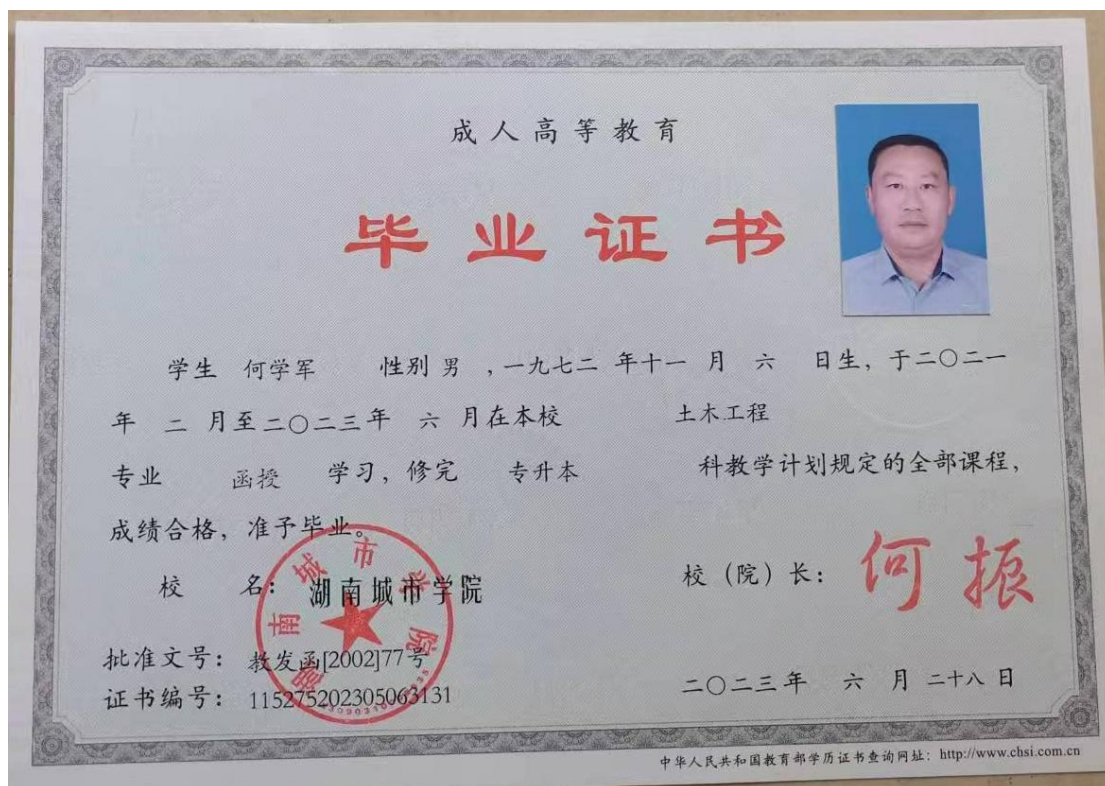 成人高等教育
毕业证书
学生 何学军 性别 男 ,一九七二 年十一 月 六 日生，于二〇二一
年 二 月至二〇二三年 六 月在本校 土木工程
专业 函授 学习，修完 专升本 科教学计划规定的全部课程，
成绩合格，准予毕业。
校 名：湖南城市学院
校（院）长：何振
湖南城市学院
批准文号：教发函[2002]77号
证书编号：115275202305063131
二〇二三年 六 月 二十八 日
中华人民共和国教育部学历证书查询网址：http://www.chsi.com.cn